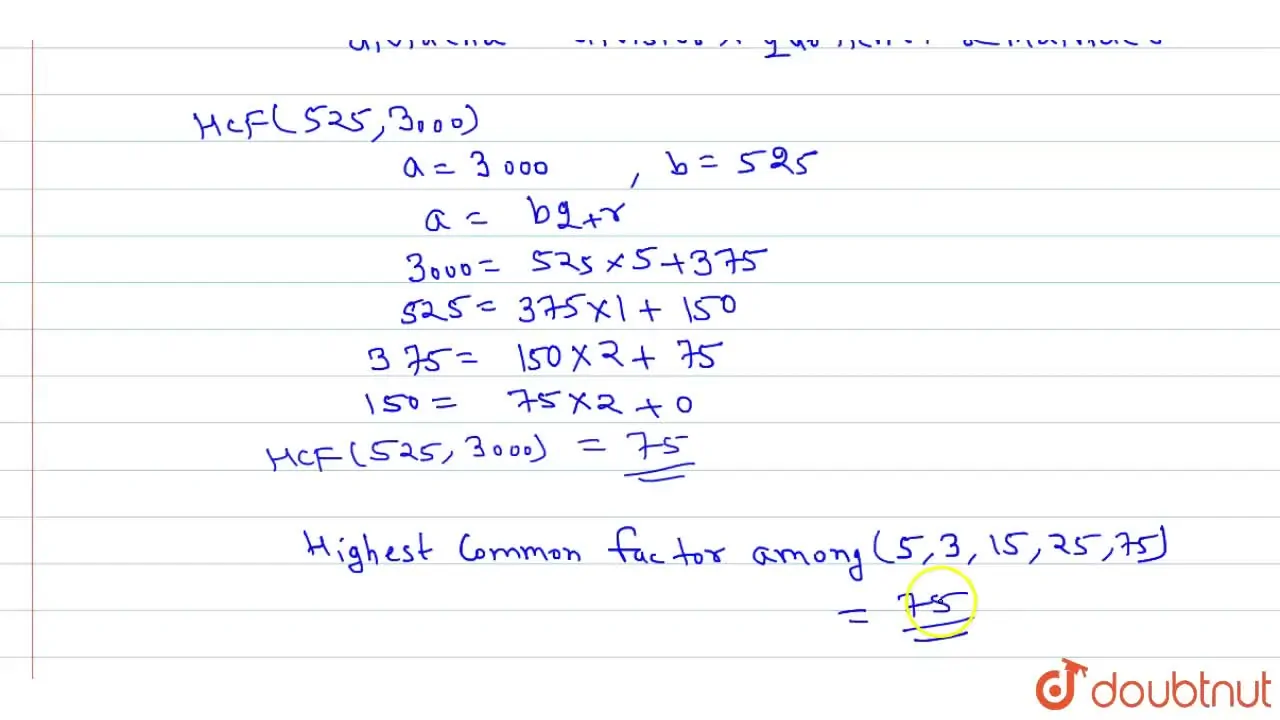 HCF(525,3000)
a = 3000 , b = 525
a = bq+r
3000 = 525×5+375
525 = 375×1+ 150
375 = 150×2+ 75
150 = 75×2+0
HCF(525, 3000) = 75
Highest Common factor among (5,3,15,25,75)
= 75
doubtnut